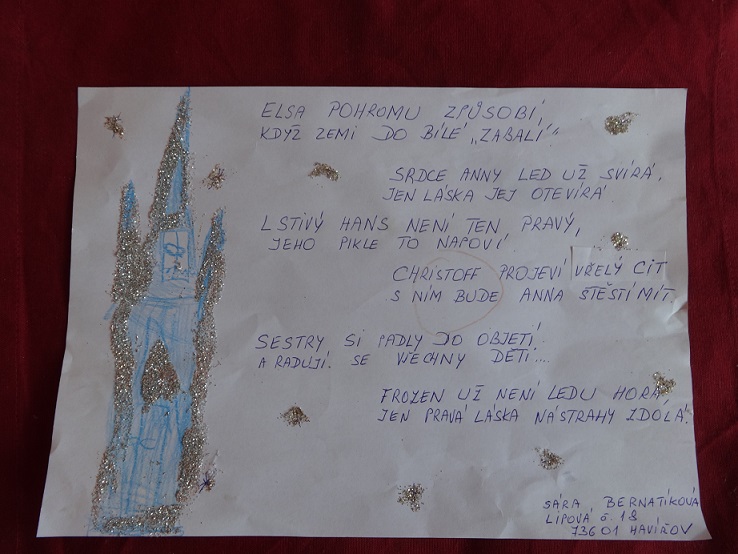 ELSA POHROMU ZPŮSOBÍ,
KDYŽ ZEMI DO BÍLÉ „ZABALÍ“.
SRDCE ANNY LED UŽ SVÍRÁ,
JEN LÁSKA JEJ OTEVÍRÁ
LSTIVÝ HANS NENÍ TEN PRAVÝ,
JEHO PIKLE TO NAPOVÍ
CHRISTOFF PROJEVÍ VŘELÝ CIT
S NÍM BUDE ANNA ŠTĚSTÍ MÍT.
SESTRY SI PADLY DO OBJETÍ
A RADUJÍ. SE VŠECHNY DĚTI....
FROZEN UŽ NENÍ LEDU HORA,
JEN PRAVÁ LÁSKA NÁSTRAHY ZDOLÁ.
SÁRA BERNATÍKOVÁ
LIPOVÁ č. 18
73601 HAVÍŘOV